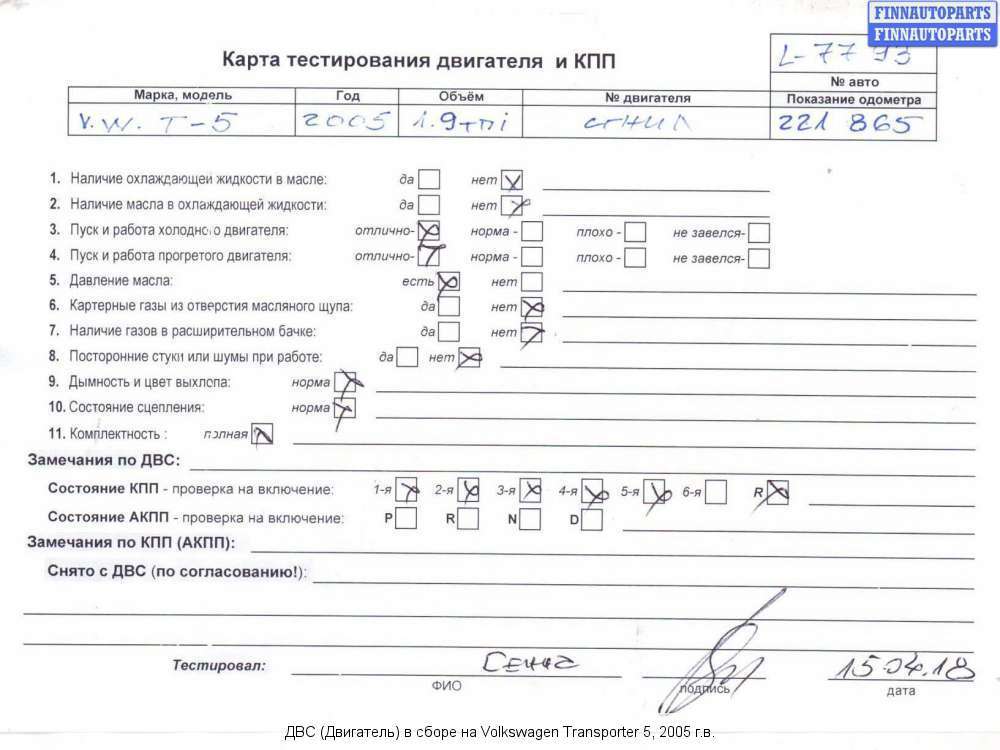 FINNAUTOPARTS
FINNAUTOPARTS
Карта тестирования двигателя и КПП
L-7793
№ авто
Марка, модель Год Объём № двигателя Показание одометра
V.W. T-5 2005 1.9 TDi сгнил 221 865
1. Наличие охлаждающей жидкости в масле: да нет
2. Наличие масла в охлаждающей жидкости: да нет
3. Пуск и работа холодного двигателя: отлично- норма - плохо - не завелся-
4. Пуск и работа прогретого двигателя: отлично- норма - плохо - не завелся-
5. Давление масла: есть нет
6. Картерные газы из отверстия масляного щупа: да нет
7. Наличие газов в расширительном бачке: да нет
8. Посторонние стуки или шумы при работе: да нет
9. Дымность и цвет выхлопа: норма
10. Состояние сцепления: норма
11. Комплектность : полная
Замечания по ДВС:
Состояние КПП - проверка на включение: 1-я 2-я 3-я 4-я 5-я 6-я R
Состояние АКПП - проверка на включение: P R N D
Замечания по КПП (АКПП):
Снято с ДВС (по согласованию!):
Тестировал: 15.04.18
ФИО подпись дата
ДВС (Двигатель) в сборе на Volkswagen Transporter 5, 2005 г.в.